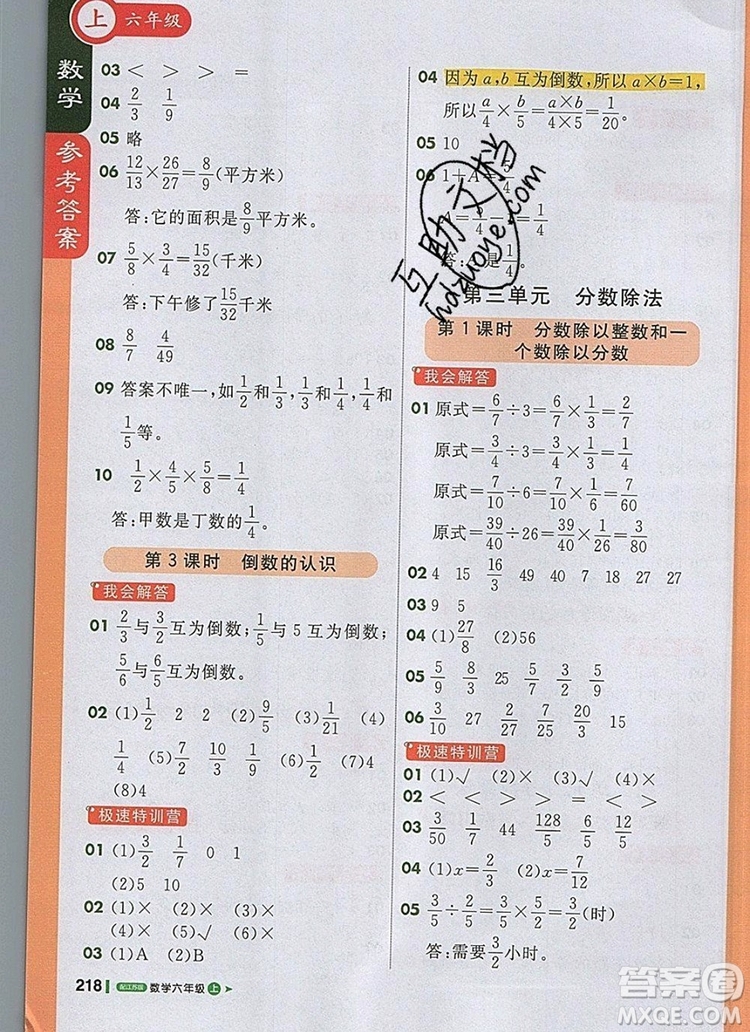 上 六年级
数学
参考答案
03 < > > =
04 2/3 1/9
05 略
06 12/13×26/27=8/9(平方米)
答:它的面积是8/9平方米。
07 5/8×3/4=15/32(千米)
答:下午修了15/32千米。
08 8/7 4/49
09 答案不唯一,如1/2和1/3,1/3和1/4,1/4和
1/5等。
10 1/2×4/5×5/8=1/4
答:甲数是丁数的1/4。
第3课时 倒数的认识
我会解答
01 2/3与3/2互为倒数;1/5与5互为倒数;
5/6与6/5互为倒数。
02 (1)1/2 2 2 (2)9/5 (3)1/21 (4)
1/4 (5)7/2 10/7 (6)1/2 (7)4
(8)4
极速特训营
01 (1)3/2 1/7 0 1
(2)5 10
02 (1)× (2)× (3)×
(4)× (5)√ (6)×
03 (1)A (2)B
218 配江苏版 数学六年级 上
04 因为a,b互为倒数,所以a×b=1,
所以a/4×b/5=a×b/4×5=1/20。
05 10
06 1+A=5/4
A=5/4-=1/4
是1/4。
第三单元 分数除法
第1课时 分数除以整数和一
个数除以分数
我会解答
01 原式=6/7÷3=6/7×1/3=2/7
原式=3/5÷4=3/5×1/4=3/20
原式=7/10÷2=7/10×1/2=7/20
原式=39/40÷26=39/40×1/26=3/80
02 4 15 16/3 49 9 45 16 42
03 9 5
04 (1)27/8 (2)56
05 5/9 8/3 25 25/4 5/9 30
06 3/10 27 27/2 5/7 20/3 15
极速特训营
01 (1)√ (2)× (3)× (4)×
02 < < > > < >
03 3/50 1/7 44 128/5 6/5 64
04 (1)x=2/3 (2)x=5/7
05 3/5÷2/5=3/5×5/2=3/2(时)
答:需要3/2小时。
互助文档
hdzuoye.com
答案圈
MXQE.COM